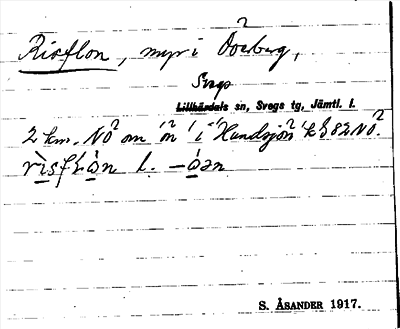 Risflon, myr i Överberg,
Svegs
Lillhärdals sn, Svegs tg, Jämtl. l.
2 km. NO om ön i Handsjön k§ 82 NO.
l.
S. ÅSANDER 1917.